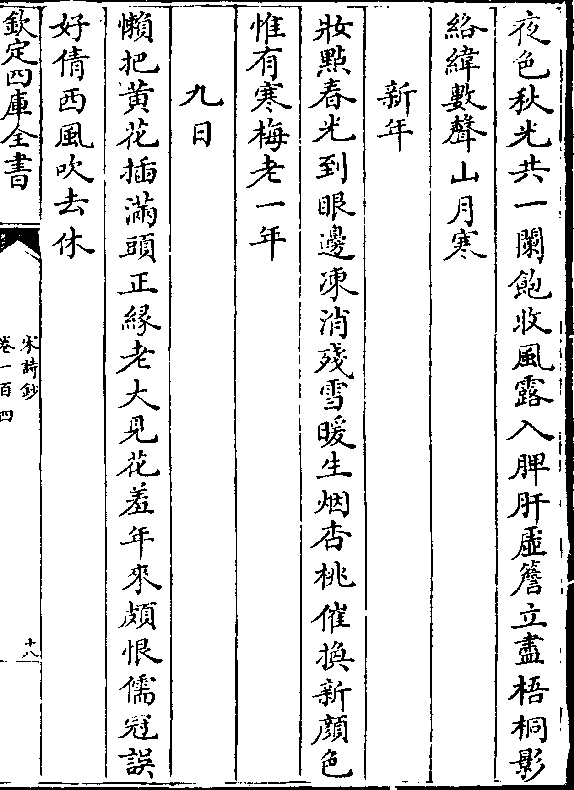 夜色秋光共一闌飽收風露入脾肝虛簷立盡梧桐影
絡緯數聲山月寒
新年
妝點春光到眼邊凍消殘雪暖生烟杏桃催換新顔色
惟有寒梅老一年
九日
懶把黃花插滿頭正緣老大見花羞年來頗恨儒冠誤
好倩西風吹去休
欽定四庫全書
宋詩鈔
卷一百四
十八